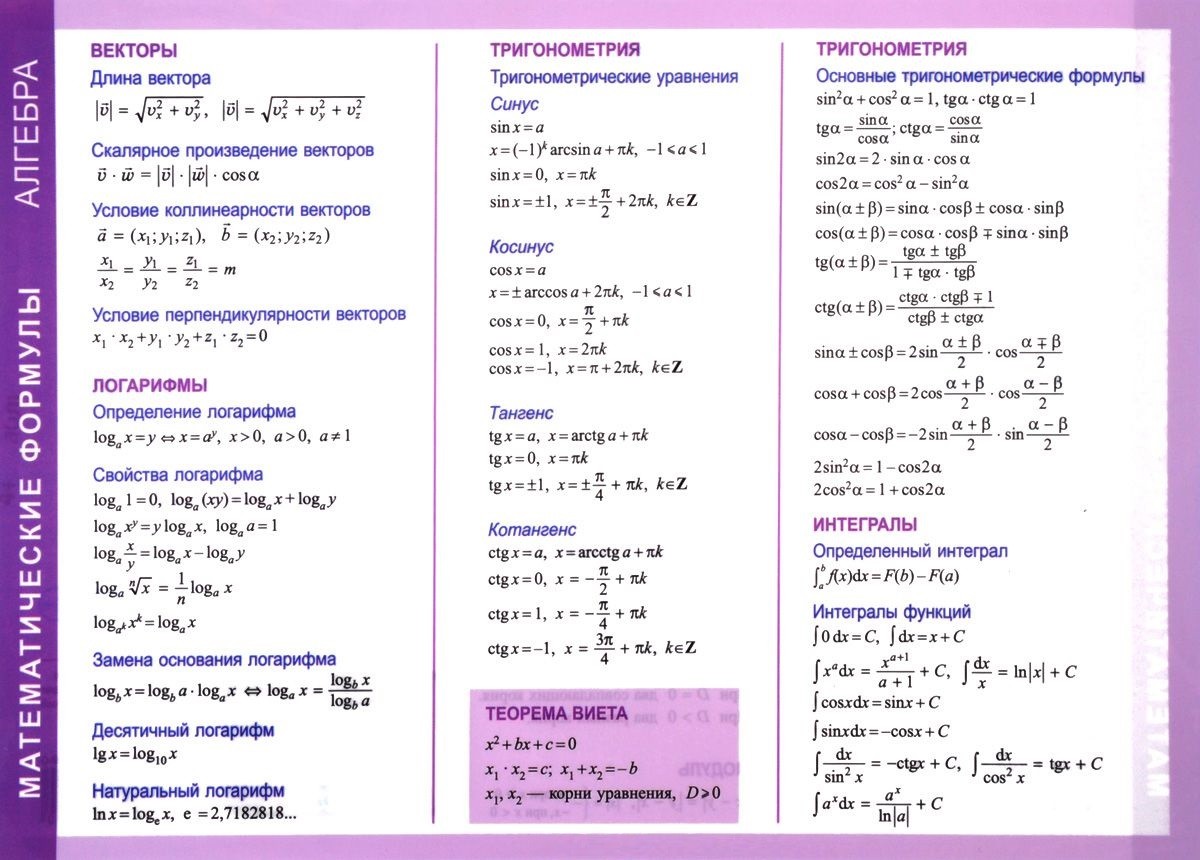 МАТЕМАТИЧЕСКИЕ ФОРМУЛЫ АЛГЕБРА
ВЕКТОРЫ
Длина вектора
|v⃗| = √(v²ₓ + v²ᵧ), |v⃗| = √(v²ₓ + v²ᵧ + v²_z)
Скалярное произведение векторов
v⃗ · w⃗ = |v⃗| · |w⃗| · cos α
Условие коллинеарности векторов
a⃗ = (x₁; y₁; z₁), b⃗ = (x₂; y₂; z₂)
x₁/x₂ = y₁/y₂ = z₁/z₂ = m
Условие перпендикулярности векторов
x₁ · x₂ + y₁ · y₂ + z₁ · z₂ = 0
ЛОГАРИФМЫ
Определение логарифма
logₐ x = y ⇔ x = aʸ, x > 0, a > 0, a ≠ 1
Свойства логарифма
logₐ 1 = 0, logₐ (xy) = logₐ x + logₐ y
logₐ xʸ = y logₐ x, logₐ a = 1
logₐ x/y = logₐ x − logₐ y
logₐ ⁿ√x = 1/n logₐ x
log_aᵏ xᵏ = logₐ x
Замена основания логарифма
log_b x = log_b a · logₐ x ⇔ logₐ x = log_b x / log_b a
Десятичный логарифм
lg x = log₁₀ x
Натуральный логарифм
ln x = logₑ x, e = 2,7182818...
ТРИГОНОМЕТРИЯ
Тригонометрические уравнения
Синус
sin x = a
x = (−1)ᵏ arcsin a + πk, −1 ⩽ a ⩽ 1
sin x = 0, x = πk
sin x = ±1, x = ±π/2 + 2πk, k∈Z
Косинус
cos x = a
x = ± arccos a + 2πk, −1 ⩽ a ⩽ 1
cos x = 0, x = π/2 + πk
cos x = 1, x = 2πk
cos x = −1, x = π + 2πk, k∈Z
Тангенс
tg x = a, x = arctg a + πk
tg x = 0, x = πk
tg x = ±1, x = ±π/4 + πk, k∈Z
Котангенс
ctg x = a, x = arcctg a + πk
ctg x = 0, x = −π/2 + πk
ctg x = 1, x = −π/4 + πk
ctg x = −1, x = 3π/4 + πk, k∈Z
ТЕОРЕМА ВИЕТА
x² + bx + c = 0
x₁ · x₂ = c; x₁ + x₂ = −b
x₁, x₂ — корни уравнения, D ⩾ 0
ТРИГОНОМЕТРИЯ
Основные тригонометрические формулы
sin²α + cos²α = 1, tgα · ctgα = 1
tgα = sinα/cosα; ctgα = cosα/sinα
sin2α = 2 · sinα · cosα
cos2α = cos²α − sin²α
sin(α ± β) = sinα · cosβ ± cosα · sinβ
cos(α ± β) = cosα · cosβ ∓ sinα · sinβ
tg(α ± β) = (tgα ± tgβ)/(1 ∓ tgα · tgβ)
ctg(α ± β) = (ctgα · ctgβ ∓ 1)/(ctgβ ± ctgα)
sinα ± cosβ = 2sin (α ± β)/2 · cos (α ∓ β)/2
cosα + cosβ = 2cos (α + β)/2 · cos (α − β)/2
cosα − cosβ = −2sin (α + β)/2 · sin (α − β)/2
2sin²α = 1 − cos2α
2cos²α = 1 + cos2α
ИНТЕГРАЛЫ
Определенный интеграл
∫ₐᵇ f(x)dx = F(b) − F(a)
Интегралы функций
∫0 dx = C, ∫dx = x + C
∫xᵃdx = xᵃ⁺¹/(a + 1) + C, ∫dx/x = ln|x| + C
∫cosxdx = sinx + C
∫sinxdx = −cosx + C
∫dx/sin² x = −ctgx + C, ∫dx/cos² x = tgx + C
∫aˣdx = aˣ/ln|a| + C